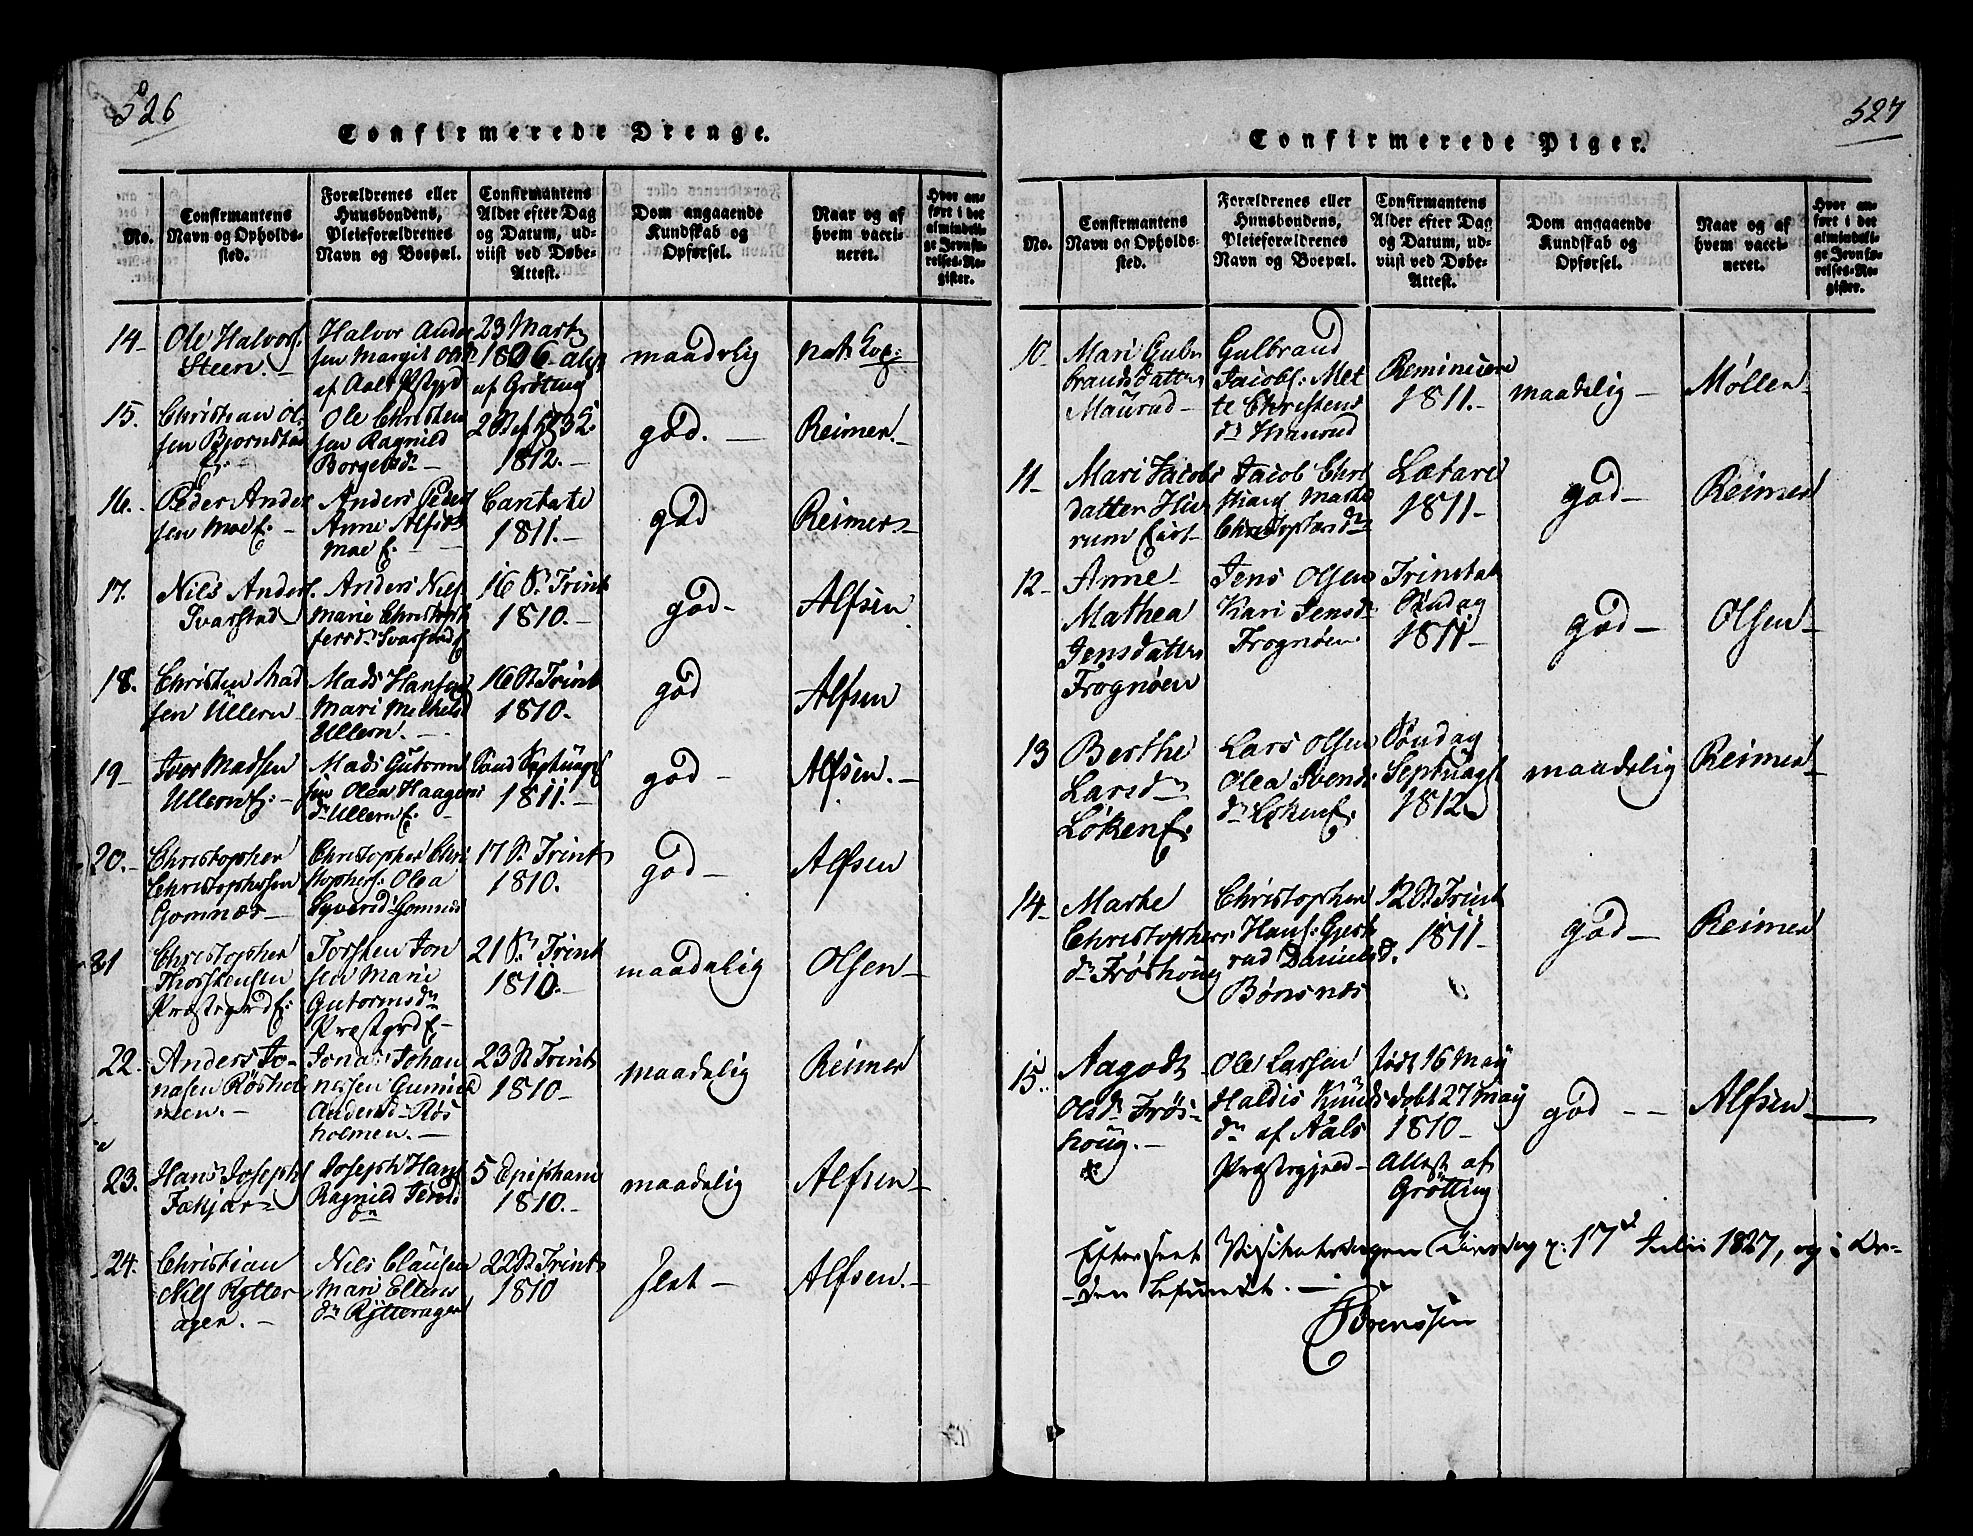 526
Confirmerede Drenge.
No.
Confirmantens
Navn og Opholds-
sted.
Forældrenes eller
Huusbondens,
Pleieforældrenes
Navn og Boepæl.
Confirmantens
Alder efter Dag
og Datum, ud-
viist ved Døbe-
Attest.
Dom angaaende
Kundskab og
Opførsel.
Naar og af
hvem vacci-
neret.
Hvor an-
ført i det
almindeli-
ge Jevnfø-
relses-Re-
gister.
14-
Ole Halvors.
Steen. -
Halvor Ander
sen Margit
af Aals Pstgrd
23 Marts
1806
af Grøting
maadelig
nat. Kop:
15.
Christian Ol-
sen Bjørnstad
E. -
Ole Christen
sen Ragnild
Borgelsdr -
1812. -
god. -
Reimer. -
16.
Peder Ander
sen Moe E. -
Anders Peders
Anne Alfsdr
Moe E. -
Cantate
1811. -
god
Reimer
17.
Nils Anders.
Svarstad
Anders Nils.
Marie Christoph
fersdr Svarstad E
16 S. Trint
1810. -
god -
Alfsen
18.
Christen Mad
sen Ullern -
Mads Hansen
Mari Michelsd
Ullern. -
16 S. Trint
1810.
god
Alfsen
19 -
Iver Madsen
Ullern E. -
Mads Gutorm
sen Olea Haagens
dr Ullern E. -
Sønd Septuages
1811. -
god -
Alfsen. -
20. -
Christopher
Christophersen
Gomnæs -
Christopher Chri
stophers. Olea
Syversd Gomnæs
17 S. Trint
1810.
god -
Alfsen
21
Christopher
Thorstensen
Præstegrd E.
Torsten Jon
sen Marie
Gutormsdr
Præstgrd E -
21 S. Trint
1810. -
maadelig
Olsen -
22.
Anders Jo-
nasen Røshol
men. -
Jonas Johan
nessen Gunild
Andersd Røs
holmen. -
23 S. Trint
1810 -
maadelig
Reimer
23.
Hans Josephs
Fakjar
Joseph Hans
Ragnild Jensd
dr
5 Epiphani
1810. -
maadelig
Alfsen -
24.
Christian
Nils Rytter
ager. -
Nils Clausen
Mari Ellens
dr Rytterager
22 S. Trint
1810
slet -
Alfsen. -
527
Confirmerede Piger.
No.
Confirmantens
Navn og Opholds-
sted.
Forældrenes eller
Huusbondens,
Pleieforældrenes
Navn og Boepæl.
Confirmantens
Alder efter Dag
og Datum, ud-
viist ved Døbe-
Attest.
Dom angaaende
Kundskab og
Opførsel.
Naar og af
hvem vacci-
neret.
Hvor an-
ført i det
almindeli-
ge Jevnfø-
relses-Re-
gister.
10
Mari Gul-
brandsdatter
Maurud -
Gulbrand
Jacobs. Met
te Christens
dr Maurud
Reminiscere
1811. -
maadelig -
Møller
11 -
Mari Jacobs
datter
rum
Jacob Chri
stians Marthe
Christophersdr
Lætare
1811 -
god -
Reimer
12 -
Anne
Mathea
Jensdatter
Frognøen
Jens Olsen
Kari Jensd
Frognøen
Trinitat
Søndag
1811 -
god -
Olsen -
13
Berthe
Larsdr
Løken E.
Lars Olsen
Olea Svends
dr Løken E.
Søndag
Septuages
1812
maadelig
Reimer
14 -
Marthe
Christophers
dr Frøshoug
Christopher
Hans. Gjert
rud Danielsd.
Bønsnæs
12 S. Trint
1811 -
god -
Reimer
15.
Aagodt
Olsdr Frøs-
houg. -
Ole Larsen
Haldis Knuds
dr af Aals
Præstegjeld -
født 16 May
døbt 27 May
1810 -
Attest af
Grøtting
god - -
Alfsen -
Efterseet Visitatsdagen Tirsdag d: 17de Julii 1827, og i Or-
den befundet. -
Sørenssen